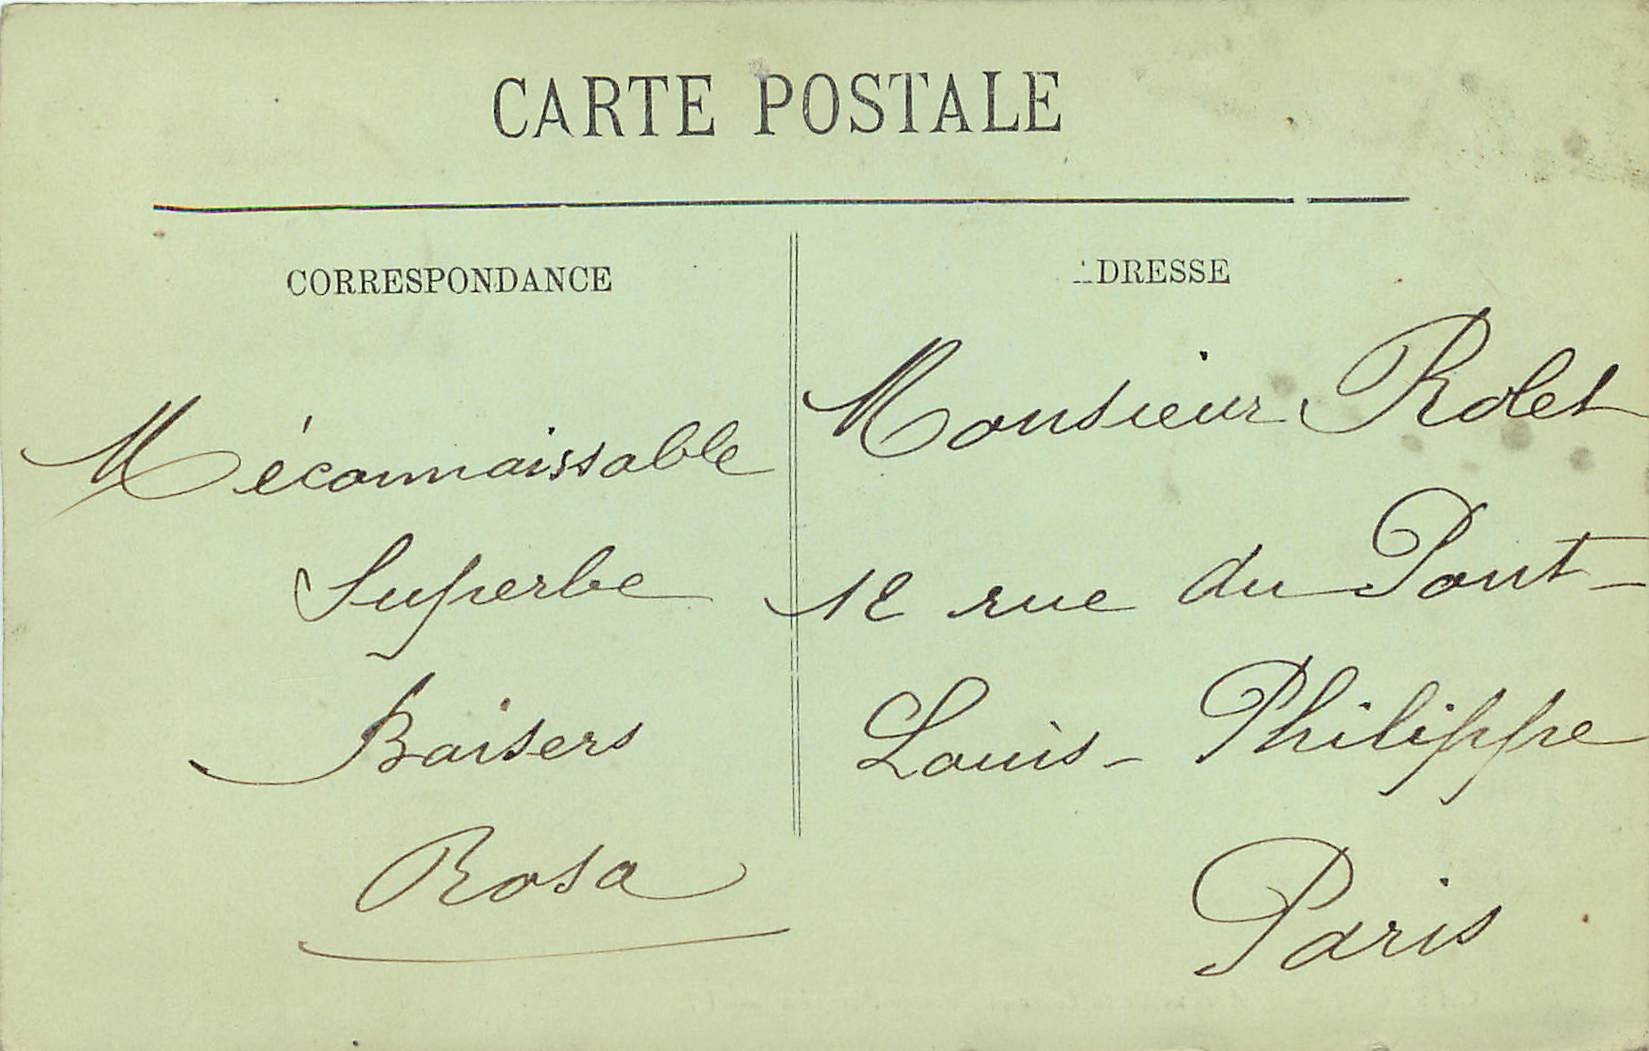 CARTE POSTALE
CORRESPONDANCE
Méconnaissable
Superbe
Baisers
Rosa
ADRESSE
Monsieur Rolet
12 rue du Pont-
Louis-Philippe
Paris